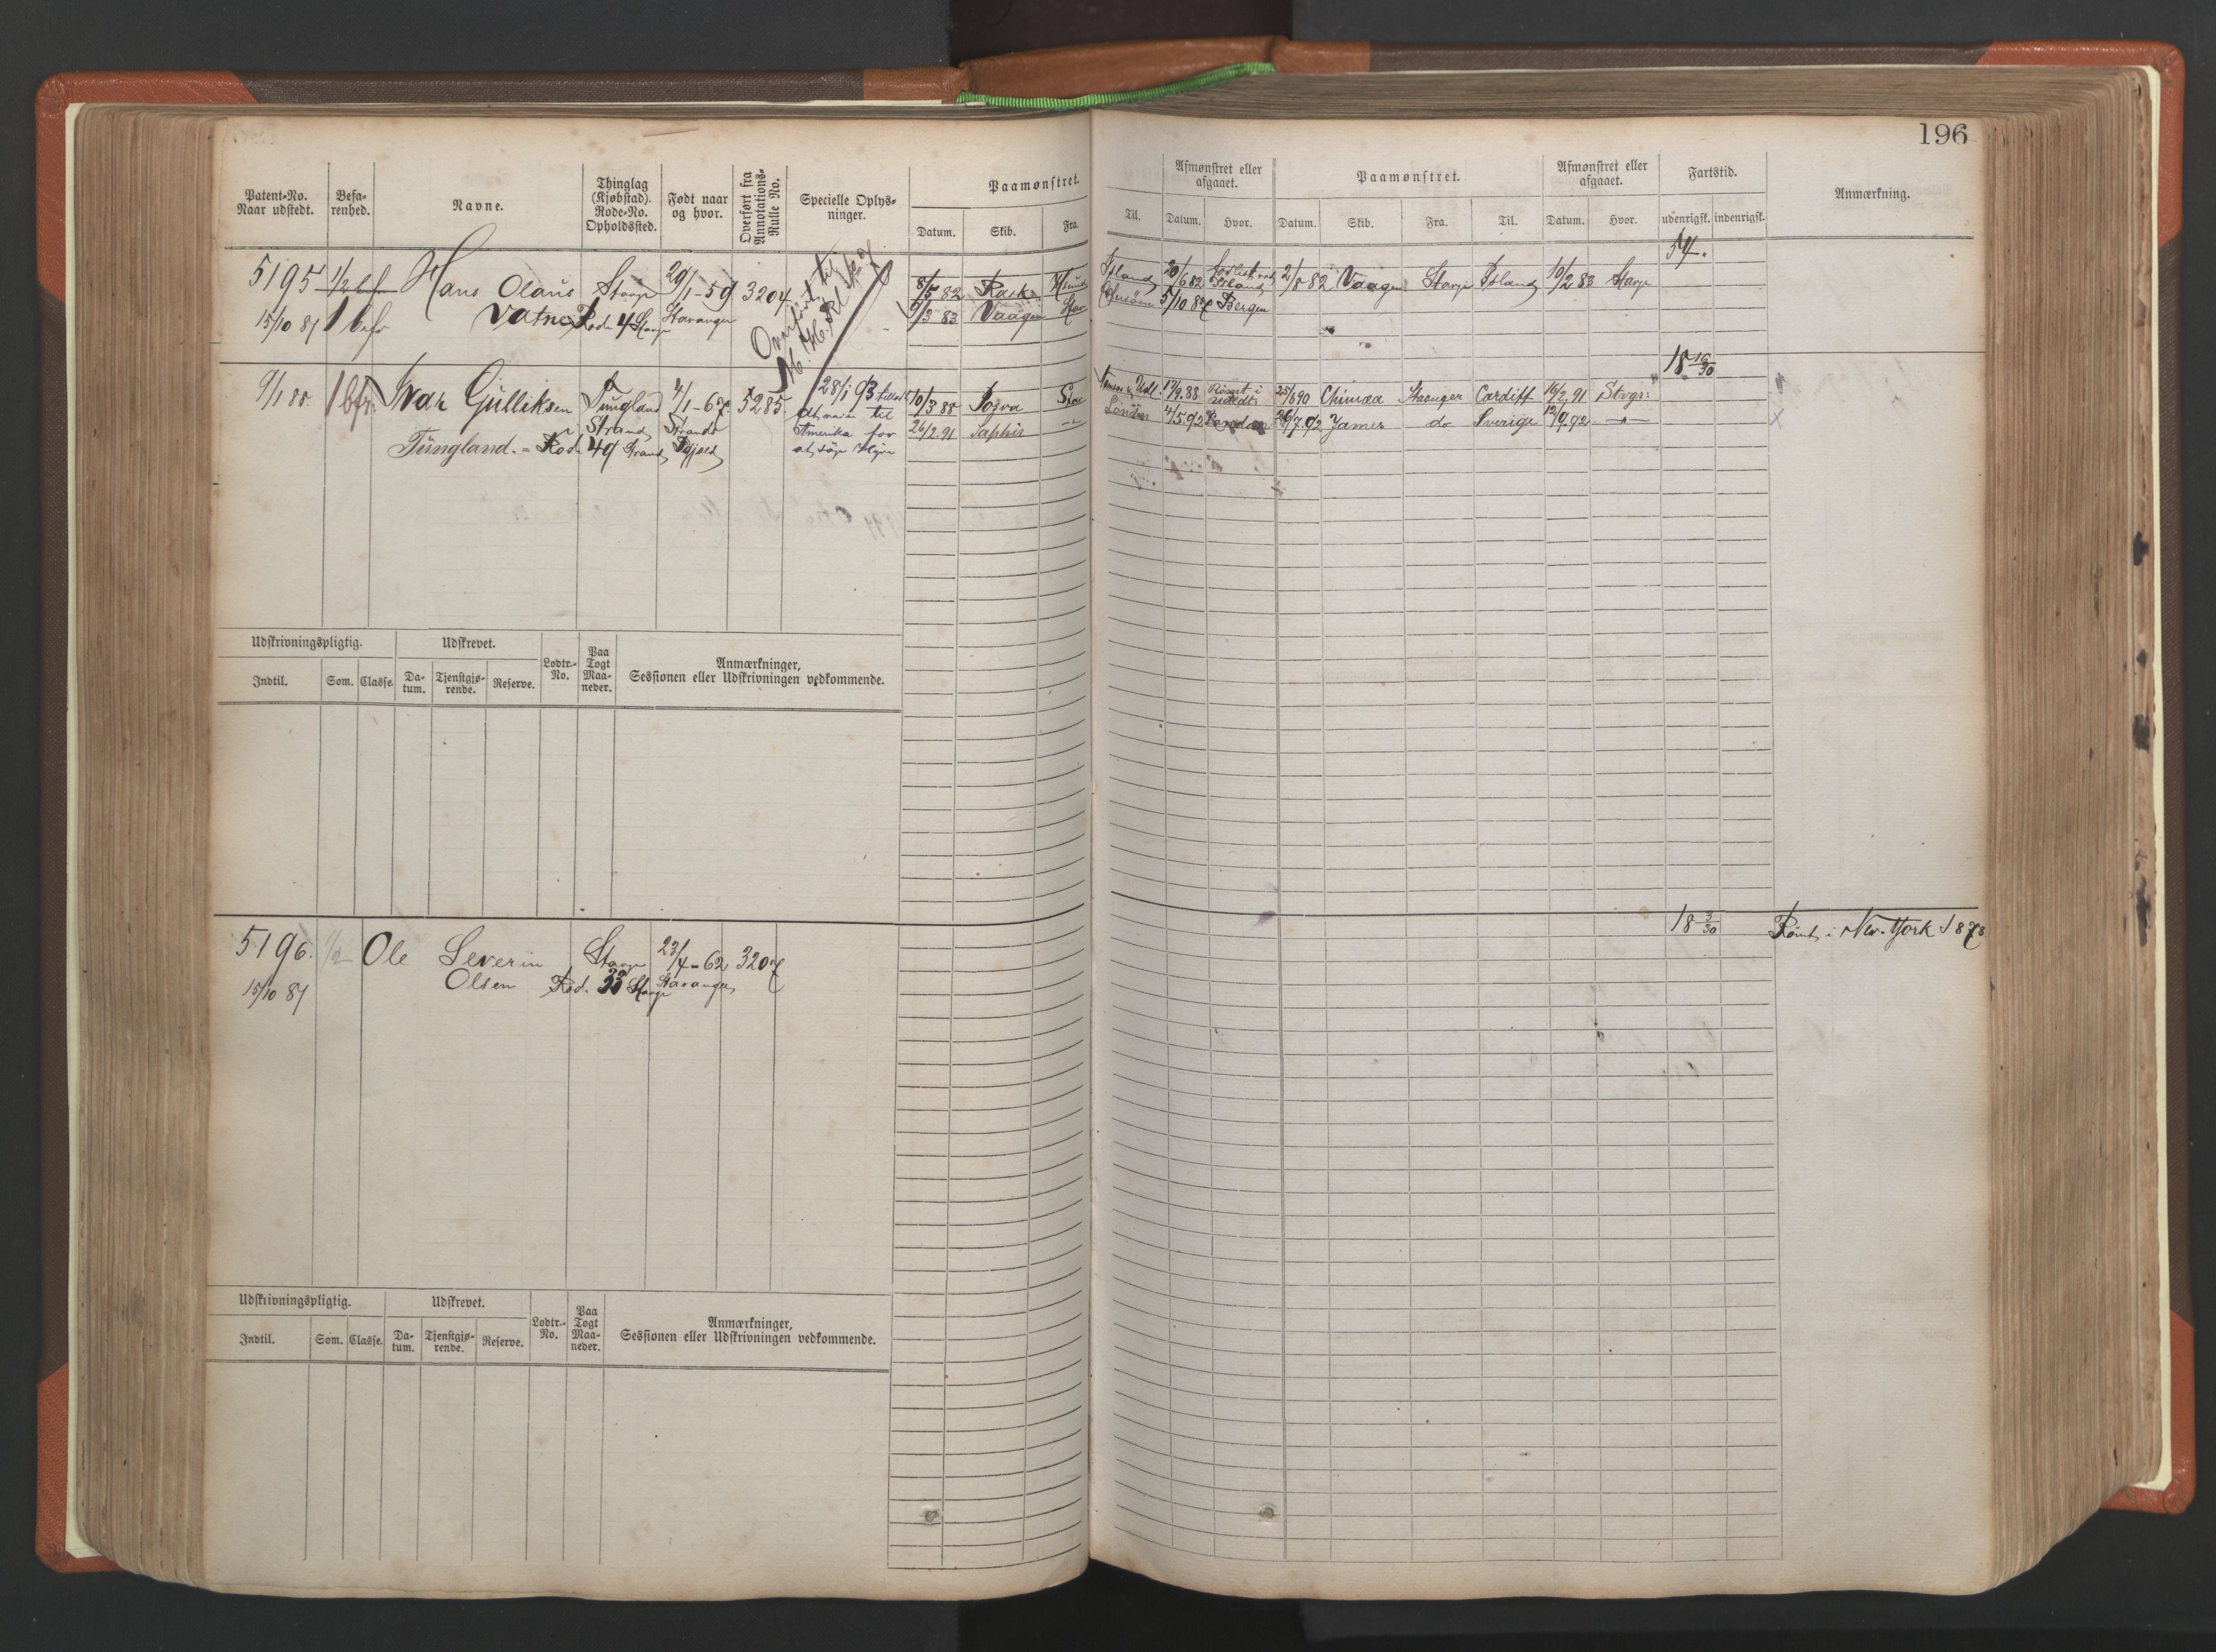 196
Patent-No. Naar udstedt. Befa-renhed. Navne. Thinglag (Kjøbstad). Rode-No. Opholdssted. Født naar og hvor. Overført fra Annotations-Rulle No. Specielle Oplys-ninger. Paamønstret. Afmønstret eller afgaaet. Paamønstret. Afmønstret eller afgaaet. Fartstid. Anmærkning.
Datum. Skib. Fra. Til. Datum. Hvor. Datum. Skib. Fra. Til. Datum. Hvor. udenrigsk. indenrigsk.
54.
5195 1/2 bf Hans Olaus Stavgr 29/1-59 3204 Overført til 8/5 82 Rask Island 20/6 82 Island 2/8 82 Vaagen Stavgr Island 10/2 83 Stavgr
15/10 81 1 bef Vatne Rode 4 Stavgr Stavanger 9/3 83 Vaagen Stav 5/10 87 Bergen
18 16/30
9/1 88. 1 bfr. Ivar Gulliksen Tungland 4/1-67 5285. 28/1 93 10/3 88 Stav 17/9.88 Rømt i 25/6 90 Chimæra Stavanger Cardiff 16/2,91 Stvgr:
Strand Strand til 26/2.91 Saphir London 4/5.92 London 26/7.92 James do Sverige 12/9.92
Tüngland. = Rode 49 Strand Amerika for
at søge Hyre
Udskrivningspligtig. Udskrevet. Lodtr.-No. Paa Togt Maa-neder. Anmærkninger, Sessionen eller Udskrivningen vedkommende.
Indtil. Som. Classe. Da-tum. Tjenstgjø-rende. Reserve.
5196. 1/2 Ole Severin Stavgr 23/4-62 3207 18 3/30 Rømt i New-York 1878
15/10 81 Olsen Rode 33 Stavgr Stavanger
Udskrivningspligtig. Udskrevet. Lodtr.-No. Paa Togt Maa-neder. Anmærkninger, Sessionen eller Udskrivningen vedkommende.
Indtil. Som. Classe. Da-tum. Tjenstgjø-rende. Reserve.